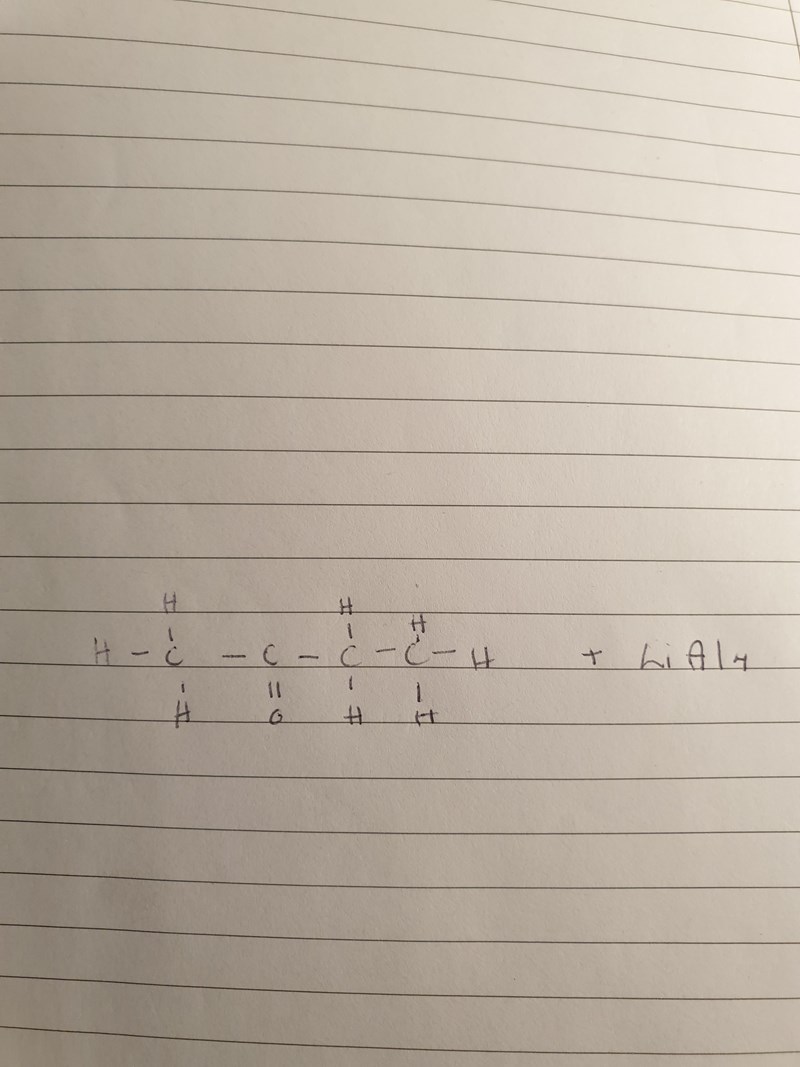 H H H
H - C - C - C - C - H + LiAl4
H O H H